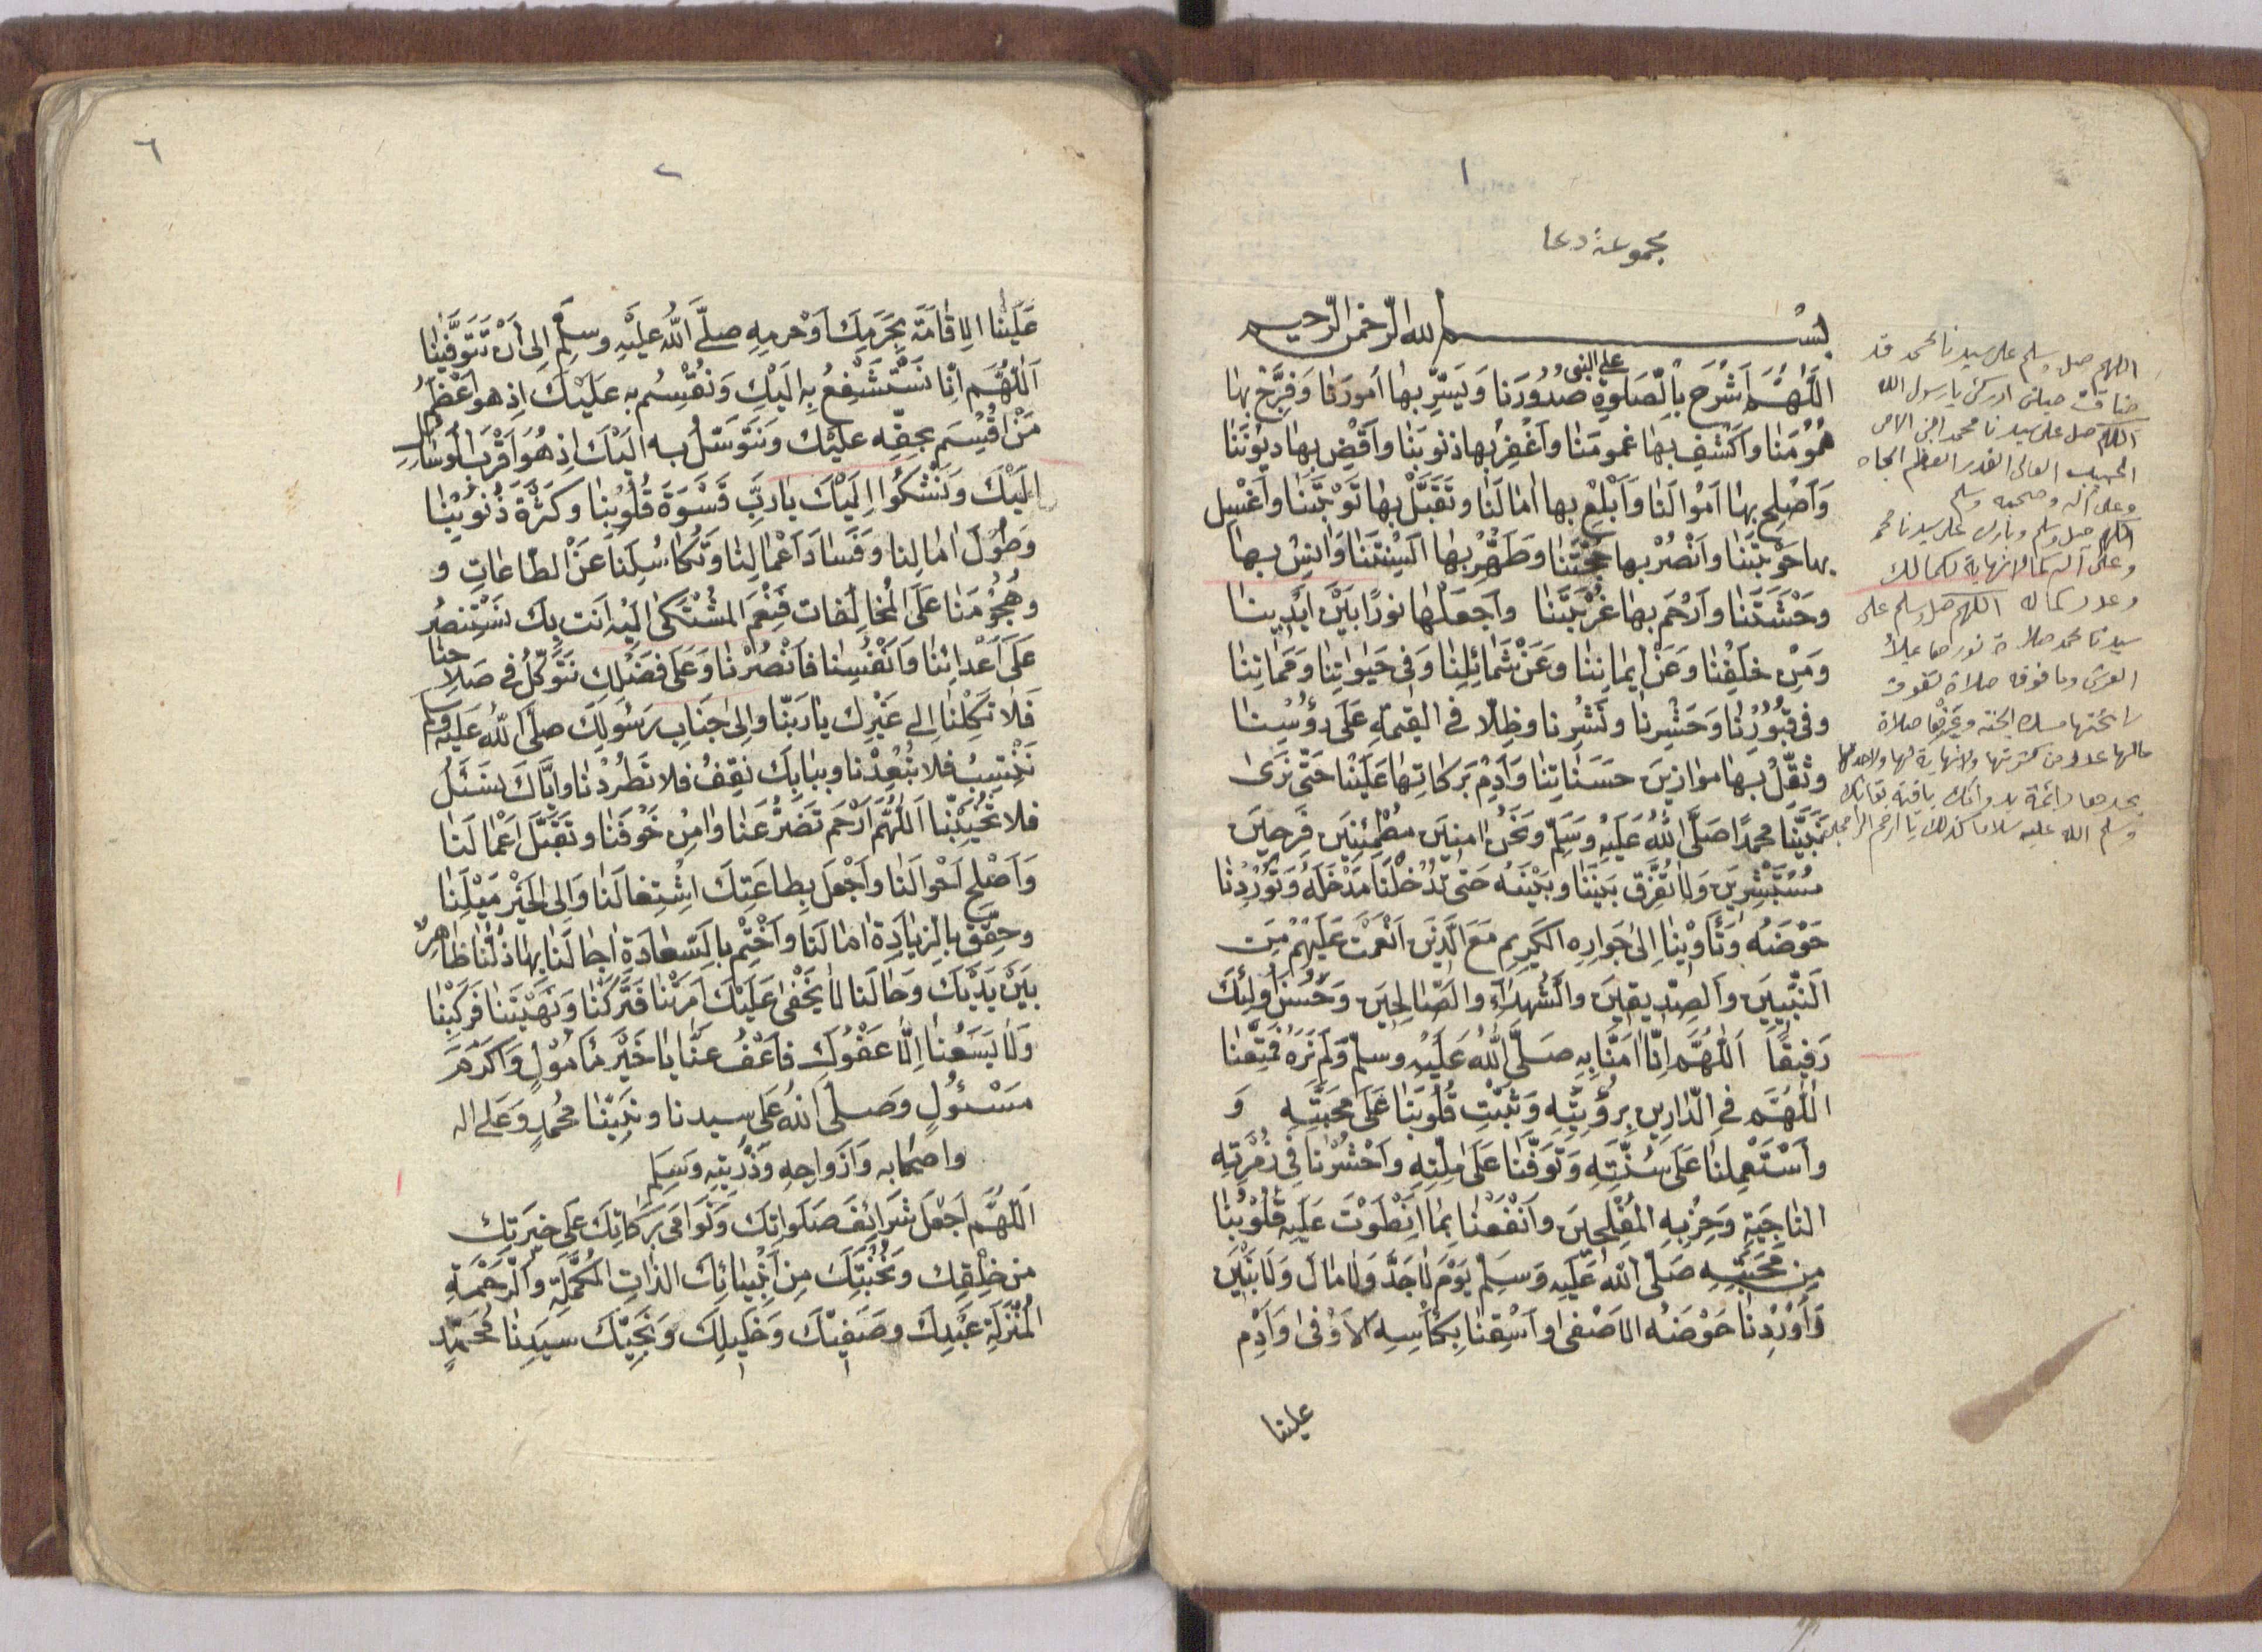 ١
مجموعۀ دعا
بسم الله الرحمن الرحيم
على النبى
اَللّٰهُمَّ اَشْرَحْ بِالصَّلٰوةِ صُدُورَنَا وَيَسِّرْ بِهَا اُمُورَنَا وَفَرِّجْ بِهَا
هُمُومَنَا وَاَكْشِفْ بِهَا غُمُومَنَا وَاَغْفِرْ بِهَا ذُنُوبَنَا وَاَقْضِ بِهَا دُيُونَنَا
وَاَصْلِحْ بِهَا اَحْوَالَنَا وَاَبْلِغْ بِهَا اٰمَالَنَا وَتَقَبَّلْ بِهَا تَوْبَتَنَا وَاَغْسِلْ
بِهَا حَوْبَتَنَا وَاَنْصُرْ بِهَا حُجَّتَنَا وَطَهِّرْ بِهَا اَلْسِنَتَنَا وَاٰنِسْ بِهَا
وَحْشَتَنَا وَاَرْحَمْ بِهَا غُرْبَتَنَا وَاَجْعَلْهَا نُورًا بَيْنَ اَيْدِينَا
وَمِنْ خَلْفِنَا وَعَنْ اَيْمَانِنَا وَعَنْ شَمَائِلِنَا وَفِى حَيٰوتِنَا وَمَمَاتِنَا
وَفِى قُبُورِنَا وَحَشْرِنَا وَنَشْرِنَا وَظِلًّا فِى الْقِيٰمَةِ عَلَى رُؤُسِنَا
وَثَقِّلْ بِهَا مَوَازِينَ حَسَنَاتِنَا وَاَدِمْ بَرَكَاتِهَا عَلَيْنَا حَتَّى نَرَىٰ
نَبِيَّنَا مُحَمَّدًا صَلَّى اللّٰهُ عَلَيْهِ وَسَلَّمَ وَنَحْنُ اٰمِنِينَ مُطْمَئِنِّينَ فَرِحِينَ
مُسْتَبْشِرِينَ وَلَا تُفَرِّقْ بَيْنَنَا وَبَيْنَهُ حَتَّى تُدْخِلَنَا مَدْخَلَهُ وَتُورِدَنَا
حَوْضَهُ وَتَأْوِيَنَا اِلَىٰ جِوَارِهِ الْكَرِيمِ مَعَ الَّذِينَ اَنْعَمْتَ عَلَيْهِمْ مِنَ
النَّبِيِّينَ وَالصِّدِّيقِينَ وَالشُّهَدَاءِ وَالصَّالِحِينَ وَحَسُنَ اُولٰئِكَ
رَفِيقًا اَللّٰهُمَّ اِنَّا اٰمَنَّا بِهِ صَلَّى اللّٰهُ عَلَيْهِ وَسَلَّمَ وَلَمْ نَرَهُ فَمَتِّعْنَا
اللّٰهُمَّ فِى الدَّارَيْنِ بِرُؤْيَتِهِ وَثَبِّتْ قُلُوبَنَا عَلَى مَحَبَّتِهِ وَ
وَاَسْتَعْمِلْنَا عَلَى سُنَّتِهِ وَتَوَفَّنَا عَلَى مِلَّتِهِ وَاَحْشُرْنَا فِى زُمْرَتِهِ
النَّاجِيَةِ وَحِزْبِهِ الْمُفْلِحِينَ وَاَنْفَعْنَا بِمَا اَنْطَوَتْ عَلَيْهِ قُلُوبُنَا
مِنْ مَحَبَّتِهِ صَلَّى اللّٰهُ عَلَيْهِ وَسَلَّمَ يَوْمَ لَا جَدَّ وَلَا مَالَ وَلَا بَنِينَ
وَاَوْرِدْنَا حَوْضَهُ الْاَصْفَىٰ وَاَسْقِنَا بِكَأْسِهِ الْاَوْفَىٰ وَاَدِمْ
علينا
اللهم صل وسلم على سيدنا محمد قد
ضاقت حيلتى ادركنى يا رسول الله
اللهم صل على سيدنا محمد النبى الامى
الحبيب العالى القدر العظيم الجاه
وعلى آله وصحبه وسلم
اللهم صل وسلم وبارك على سيدنا محمد
وعلى آله كما لا نهاية لكمالك
وعدد كماله اللهم صل وسلم على
سيدنا محمد صلاة نورها يملأ
العرش وما فوقه صلاة تفوق
رائحتها مسك الجنة صلاة
مالها عدد من كثرتها ولا نهاية لها ولا حد لها
دائمة بدوامك باقية بقائك
وسلم الله عليه سلاما كذلك يا ارحم الراحمين
٦
٢
عَلَيْنَا الْاِقَامَةَ بِحَرَمِكَ اَوْ حَرَمِهِ صَلَّى اللّٰهُ عَلَيْهِ وَسَلَّمَ اِلَى اَنْ تَتَوَفَّيْنَا
اَللّٰهُمَّ اِنَّا نَسْتَشْفِعُ بِهِ اِلَيْكَ وَنُقْسِمُ بِهِ عَلَيْكَ اِذْ هُوَ اَعْظَمُ
مَنْ اُقْسِمَ بِحَقِّهِ عَلَيْكَ وَنَتَوَسَّلُ بِهِ اِلَيْكَ اِذْ هُوَ اَقْرَبُ الْوَسَائِلِ
اِلَيْكَ وَنَشْكُوا اِلَيْكَ يَا رَبِّ قَسْوَةَ قُلُوبِنَا وَكَثْرَةَ ذُنُوبِنَا
وَطُولَ اٰمَالِنَا وَفَسَادَ اَعْمَالِنَا وَتَكَاسُلَنَا عَنِ الطَّاعَاتِ وَ
وَهُجُومَنَا عَلَى الْمُخَالَفَاتِ فَنِعْمَ الْمُشْتَكَىٰ اِلَيْهِ اَنْتَ بِكَ نَسْتَنْصِرُ
عَلَى اَعْدَائِنَا وَاَنْفُسِنَا فَانْصُرْنَا وَعَلَى فَضْلِكَ نَتَوَكَّلُ فِى صَلَاحِنَا
فَلَا تَكِلْنَا اِلَى غَيْرِكَ يَا رَبَّنَا وَاِلَىٰ جَنَابِ رَسُولِكَ صَلَّى اللّٰهُ عَلَيْهِ وَسَلَّمَ
نَنْتَسِبُ فَلَا تُبْعِدْنَا وَبِبَابِكَ نَقِفُ فَلَا تَطْرُدْنَا وَاِيَّاكَ نَسْئَلُ
فَلَا تُخَيِّبْنَا اَللّٰهُمَّ اَرْحَمْ تَضَرُّعَنَا وَاٰمِنْ خَوْفَنَا وَتَقَبَّلْ اَعْمَالَنَا
وَاَصْلِحْ اَحْوَالَنَا وَاَجْعَلْ بِطَاعَتِكَ اِشْتِغَالَنَا وَاِلَى الْخَيْرِ مَيْلَنَا
وَحَقِّقْ بِالزِّيَادَةِ اٰمَالَنَا وَاَخْتِمْ بِالسَّعَادَةِ اٰجَالَنَا بِهَا ذُلُّنَا ظَاهِرٌ
بَيْنَ يَدَيْكَ وَحَالُنَا لَا يَخْفَىٰ عَلَيْكَ اَمَرْتَنَا فَتَرَكْنَا وَنَهَيْتَنَا فَرَكِبْنَا
وَلَا يَسَعُنَا اِلَّا عَفْوُكَ فَاَعْفُ عَنَّا يَا خَيْرَ مَأْمُولٍ وَاَكْرَمَ
مَسْئُولٍ وَصَلَّى اللّٰهُ عَلَى سَيِّدِنَا وَنَبِيِّنَا مُحَمَّدٍ وَعَلَى اٰلِهِ
وَاَصْحَابِهِ وَاَزْوَاجِهِ وَذُرِّيَّتِهِ وَسَلِّمْ
اَللّٰهُمَّ اَجْعَلْ شَرَائِفَ صَلَوَاتِكَ وَنَوَامِى بَرَكَاتِكَ عَلَى خِيَرَتِكَ
مِنْ خَلْقِكَ وَنُخْبَتِكَ مِنْ اَنْبِيَائِكَ الذَّاتِ الْمُكَمَّلَةِ وَالرَّحْمَةِ
الْمُنْزَلَةِ عَبْدِكَ وَصَفِيِّكَ وَخَلِيلِكَ وَنَجِيِّكَ سَيِّدِنَا مُحَمَّدٍ